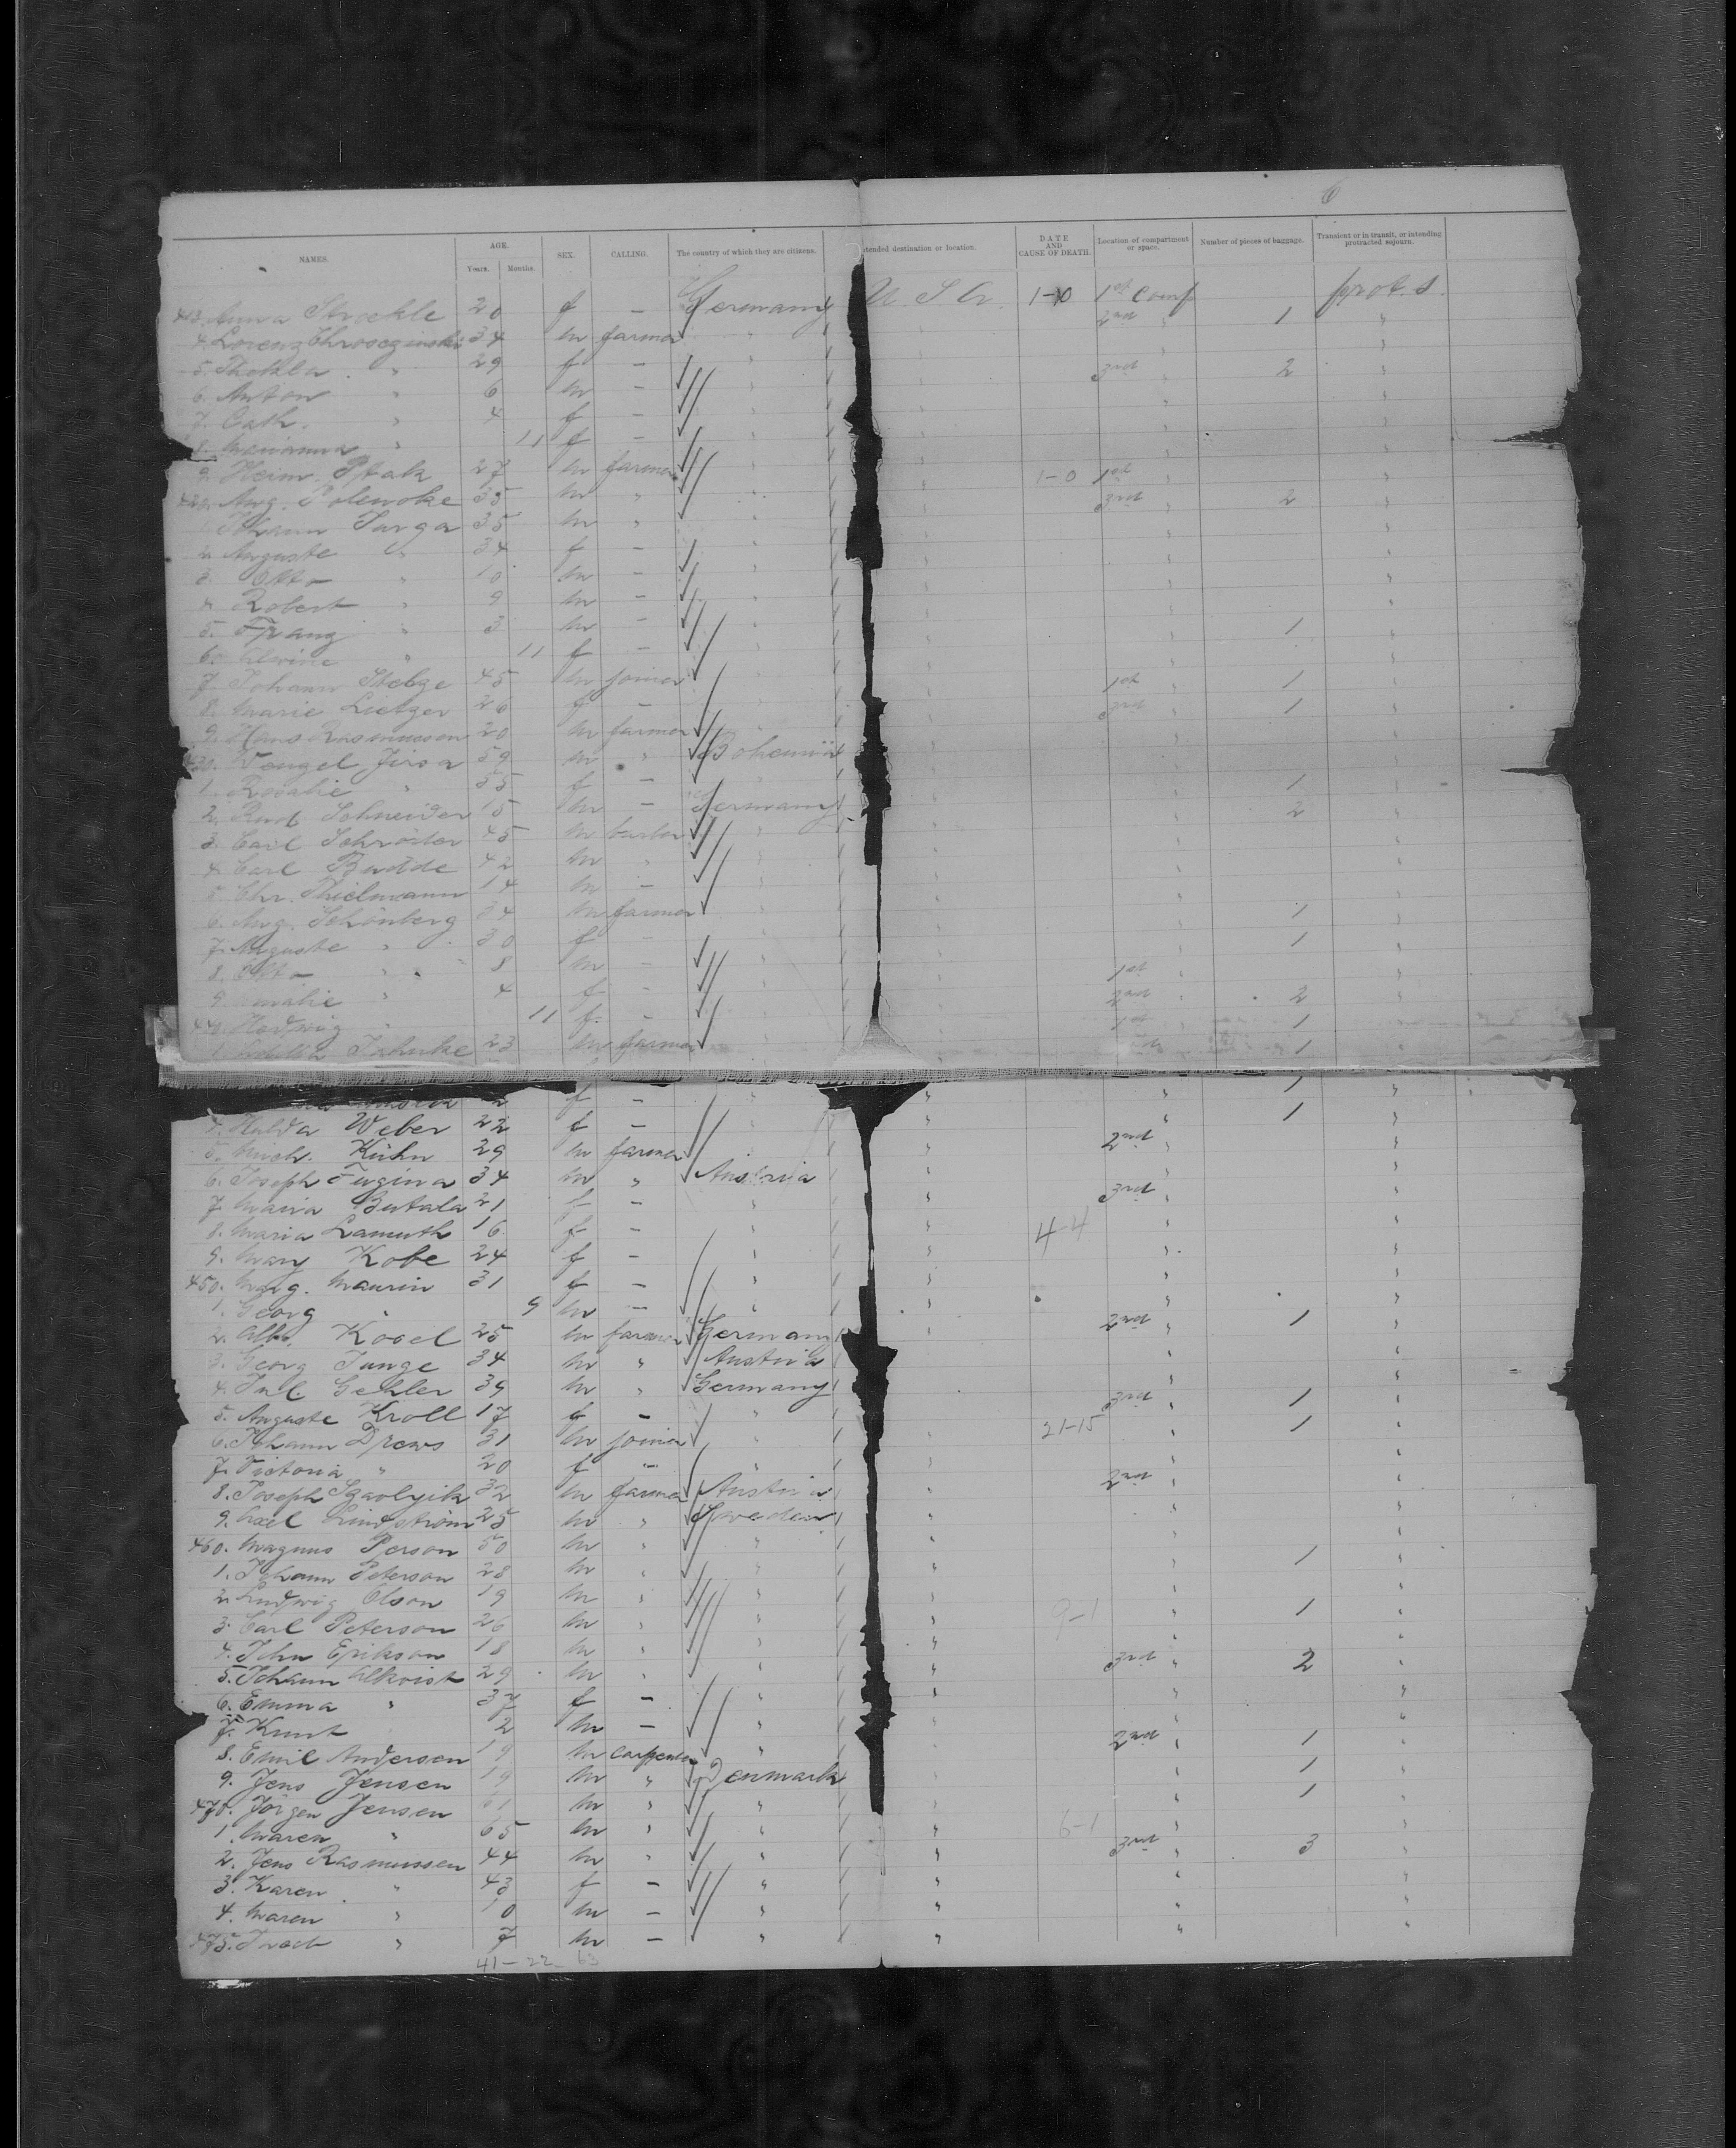 6
NAMES. AGE. Years. Months. SEX. CALLING. The country of which they are citizens. Intended destination or location. DATE AND CAUSE OF DEATH. Location of compartment or space. Number of pieces of baggage. Transient or in transit, or intending protracted sojourn.
413. Anna Strockle 20 f — Germany U S A 1-0 1st Comp prot. s.
4. Lorenz 34 m farmer " 2nd " 1 "
5. Thekla " 29 f — "
6. Anton " 6 m — " 3rd " 2 "
7. Cath. " 4 f — "
8. Marianna " 11 f —
9. Heinr. Ptak 27 m farmer 1-0 1st
420. Aug. Polenske 35 m " 3rd " 2 "
1. Johann Jurga 35 m "
2. Auguste " 34 f —
3. Otto " 10 m —
4. Robert " 9 m —
5. Franz " 3 m — 1 "
6. Alwine " 11 f —
7. Johann Stelge 45 m joiner 1st 1 "
8. Marie Luetger 26 f — 3rd " 1 "
9. Hans Rasmussen 20 m farmer
430. Wenzel Jirsa 59 m " Bohemia
1. Rosalie " 55 f — " 1 "
2. Rud. Schneider 15 m — Germany 2 "
3. Carl Schröder 45 m
4. Carl Budde 42 m "
5. Chr. Thielmann 14 m —
6. Aug. Schönberg 34 m farmer 1 "
7. Auguste " 30 f — 1 "
8. Otto " 8 m — 1st
9. Amalie " 4 f — 2nd " 2 "
440. Hedwig " 11 f. — 1st " 1
1. Jahnke 23 m farmer 1
2 f — " 1 "
4. Hulda Weber 22 f — " 1 "
5. Mich. Kühn 29 m farmer 2nd "
6. Joseph Fugina 34 m " Austria
7. Maria Butala 21 f — " 3rd "
8. Maria Lamuth 16 f — " 4-4
9. Mary Kobe 24 f — "
450. Marg. Maurin 31 f — "
1. Georg " 9 m — "
2. Alb. Kosel 25 m farmer Germany 2nd " 1 "
3. Georg Junge 34 m " Austria
4. Jul. Gehler 39 m " Germany
5. Auguste Kroll 17 f — " 3rd " 1 "
6. Johann Drews 31 m joiner " 21-15 " 1 "
7. Victoria " 20 f — "
8. Joseph 32 m farmer Austria 2nd "
9. Axel Lindström 25 m " Sweden
460. Magnus Person 50 m " "
1. Johann Peterson 28 m " " 1 "
2. Ludwig Olson 19 m " "
3. Carl Peterson 26 m " " 9-1 " 1 "
4. John Erikson 18 m " "
5. Johann Alkvist 29 m " " 3rd " 2 "
6. Emma " 37 f — "
7. Knut 2 m — "
8. Emil Andersen 19 m carpenter " 2nd " 1 "
9. Jens Jensen 19 m " Denmark " 1 "
470. Jörgen Jensen 61 m " " " 1 "
1. Maren " 65 m " " 6-1
2. Jens Rasmussen 44 m " " 3rd " 3 "
3. Karen " 43 f — "
4. Maren " 10 m — "
475. " 7 m — "
41-22 63